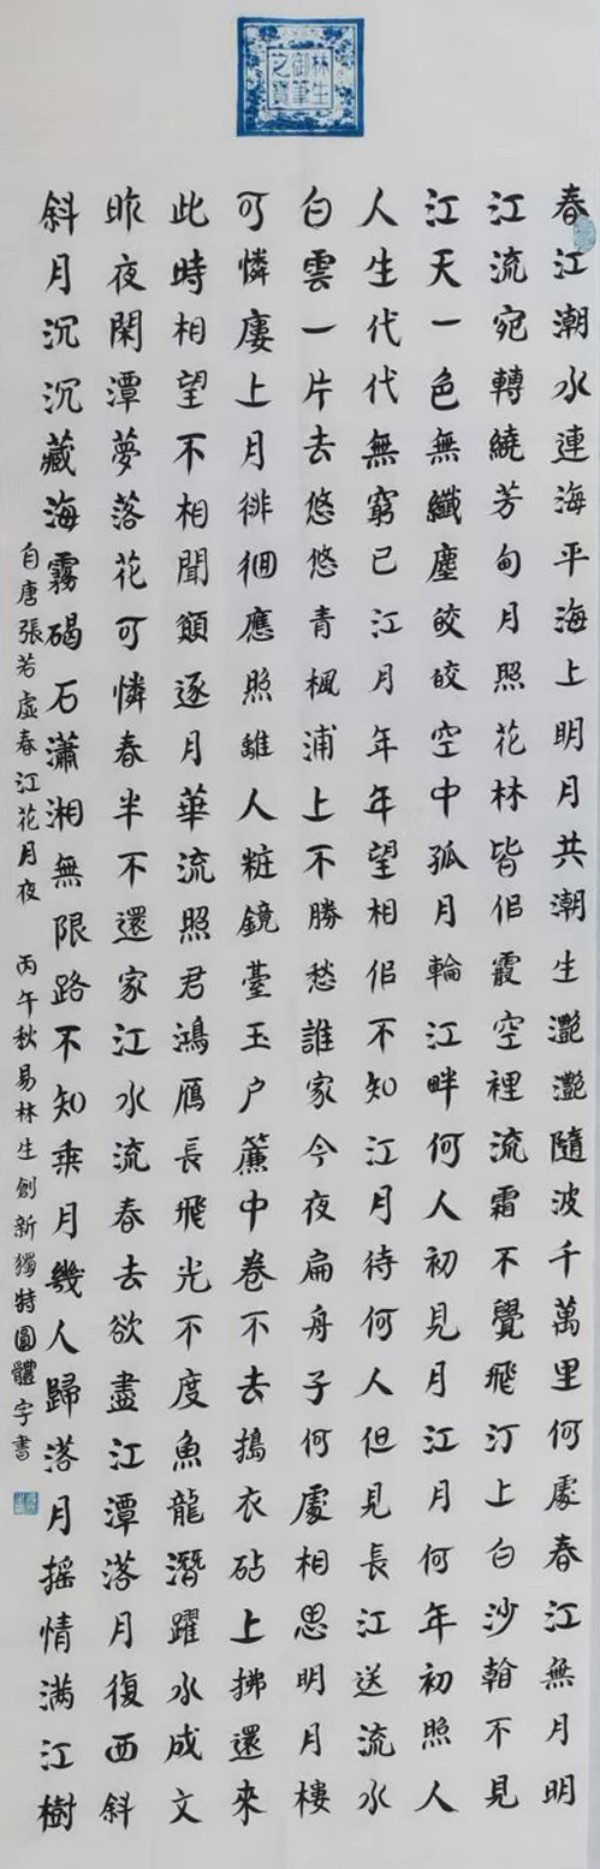 林生御筆之寶
春江潮水連海平海上明月共潮生灧灧隨波千萬里何處春江無月明
江流宛轉繞芳甸月照花林皆佀霞空裡流霜不覺飛汀上白沙翰不見
江天一色無纖塵皎皎空中孤月輪江畔何人初見月江月何年初照人
人生代代無窮已江月年年望相佀不知江月待何人但見長江送流水
白雲一片去悠悠青楓浦上不勝愁誰家今夜扁舟子何處相思明月樓
可憐廔上月徘徊應照離人粧鏡臺玉户簾中卷不去搗衣砧上拂還來
此時相望不相聞願逐月華流照君鴻雁長飛光不度魚龍潛躍水成文
昨夜閑潭夢落花可憐春半不還家江水流春去欲盡江潭落月復西斜
斜月沉沉藏海霧碣石瀟湘無限路不知乘月幾人歸落月摇情满江樹
自唐張若虛春江花月夜 丙午秋易林生創新獨特圓體字書